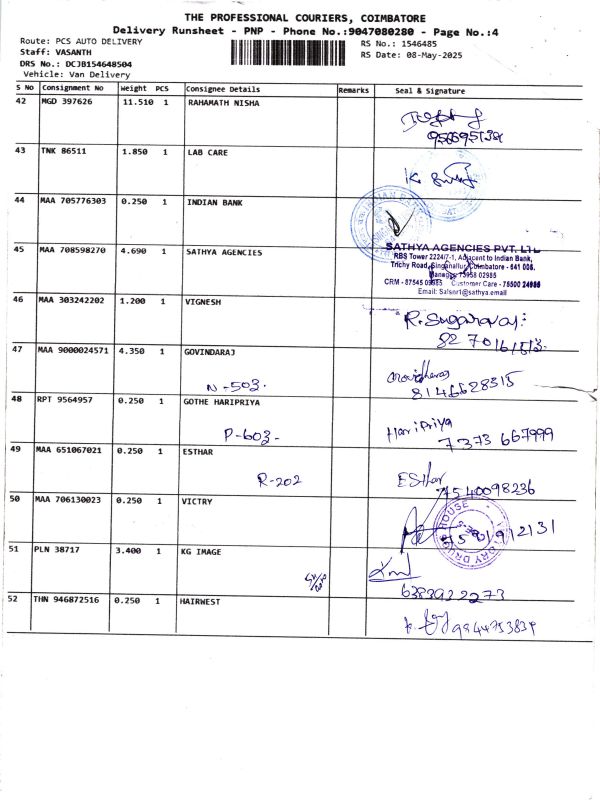 THE PROFESSIONAL COURIERS, COIMBATORE
Delivery Runsheet - PNP - Phone No.:9047080280 - Page No.:4
Route: PCS AUTO DELIVERY
RS No.: 1546485
Staff: VASANTH
RS Date: 08-May-2025
DRS No.: DCJB154648504
Vehicle: Van Delivery
S No Consignment No Weight PCS Consignee Details Remarks Seal & Signature
42 MGD 397626 11.510 1 RAHAMATH NISHA
43 TNK 86511 1.850 1 LAB CARE
44 MAA 705776303 0.250 1 INDIAN BANK
45 MAA 708598270 4.690 1 SATHYA AGENCIES
SATHYA AGENCIES PVT. LTD
RBS Tower 2224/7-1, Adjacent to Indian Bank,
Trichy Road, Singanallur, Coimbatore - 641 005.
Manager: 73958 02985
CRM - 87545 09985 Customer Care - 75500 24986
Email: Salsnr1@sathya.email
46 MAA 303242202 1.200 1 VIGNESH
R. Sugaravaj
82 70161513
47 MAA 9000024571 4.350 1 GOVINDARAJ
N-503.
8146628315
48 RPT 9564957 0.250 1 GOTHE HARIPRIYA
P-603-
HariPriya
7373 667999
49 MAA 651067021 0.250 1 ESTHAR
R-202
ESthar
7540098236
50 MAA 706130023 0.250 1 VICTRY
51 PLN 38717 3.400 1 KG IMAGE
6383922273
52 THN 946872516 0.250 1 HAIRWEST
9944753839